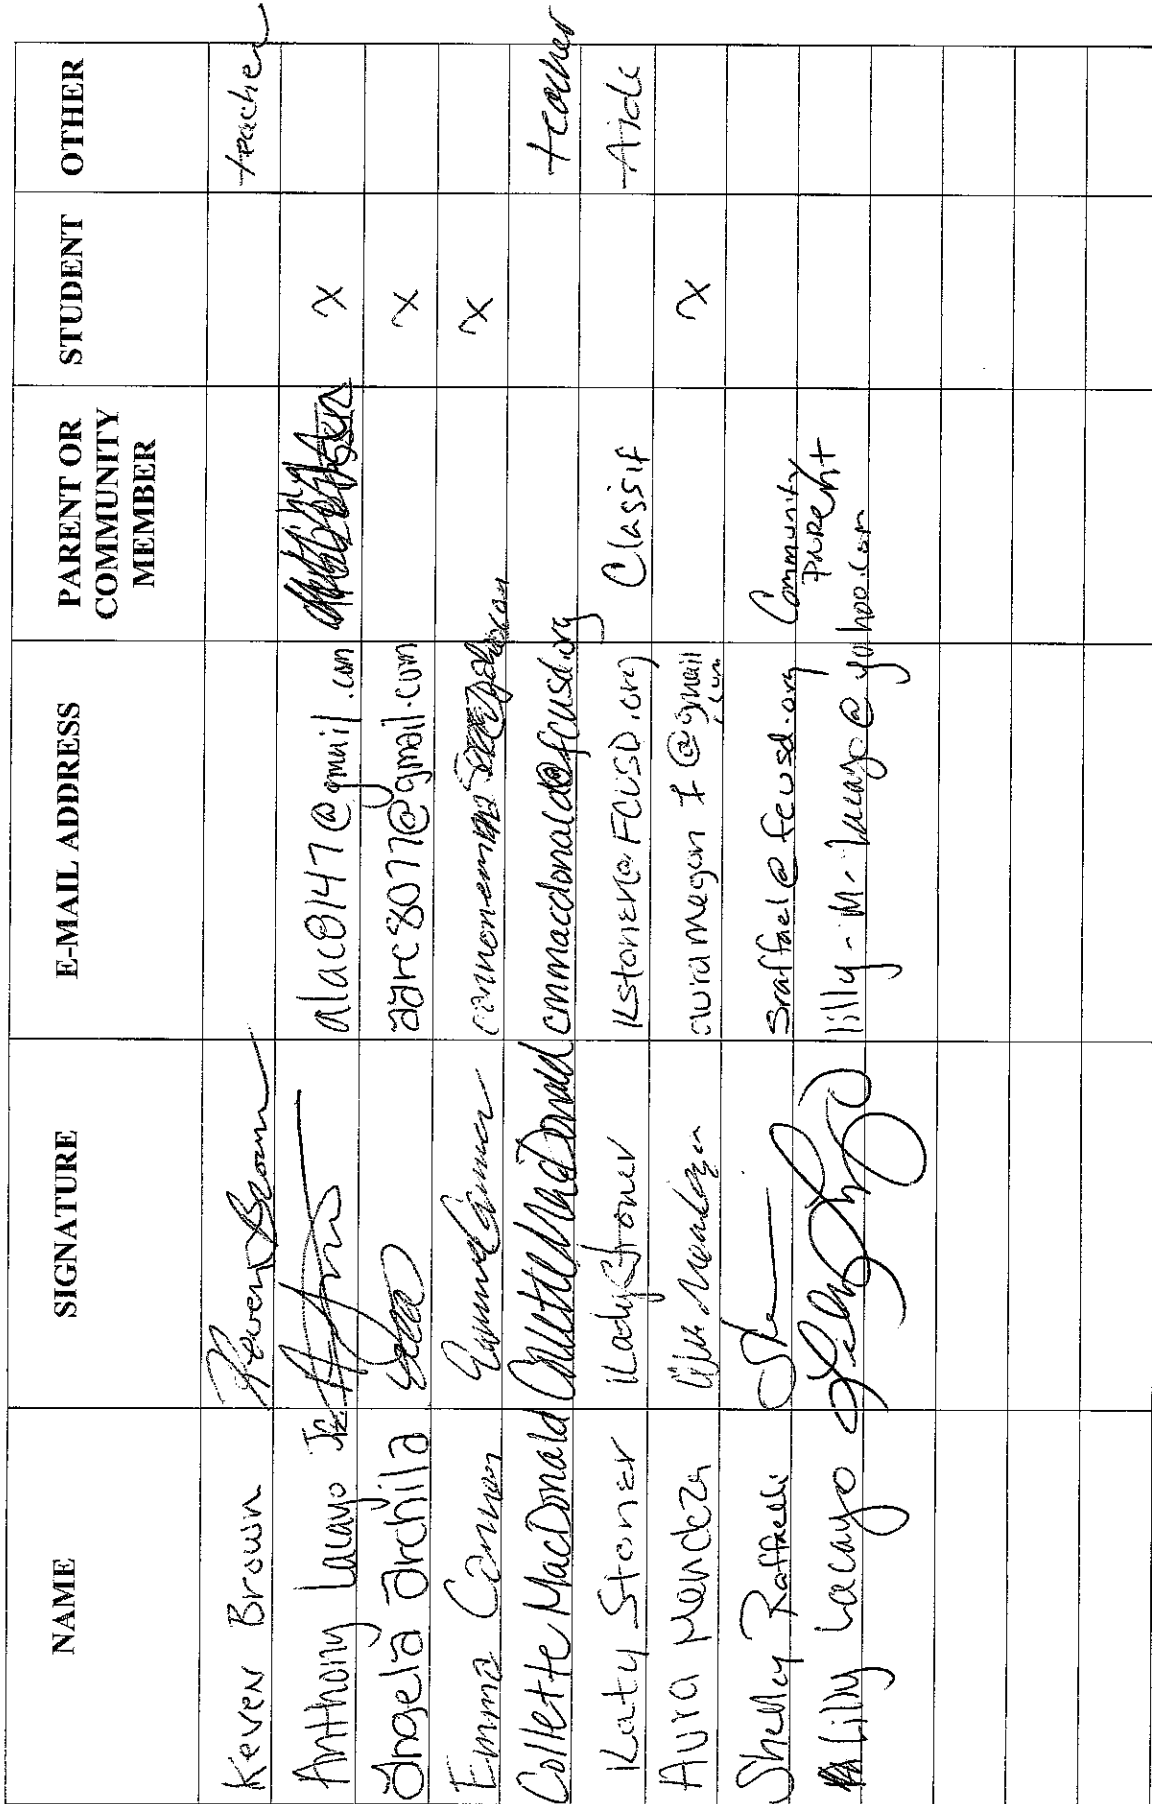 NAME SIGNATURE E-MAIL ADDRESS PARENT OR COMMUNITY MEMBER STUDENT OTHER
Keven Brown Keven Brown teacher
Anthony Lacayo Jr. alac8147@gmail.com x
Angela Archila aarc8077@gmail.com x
Emma Connor Emma Connor x
Collette MacDonald Collette MacDonald cnmacdonald@fcusd.org teacher
Katy Stoner Katy Stoner Kstoner@FCUSD.org Classif Aide
Aura Mendeza auramegan7@gmail.com x
Shelley Raffaelli sraffael@fcusd.org Community Parent
Lilly Lacayo lilly-m-lacayo@yahoo.com